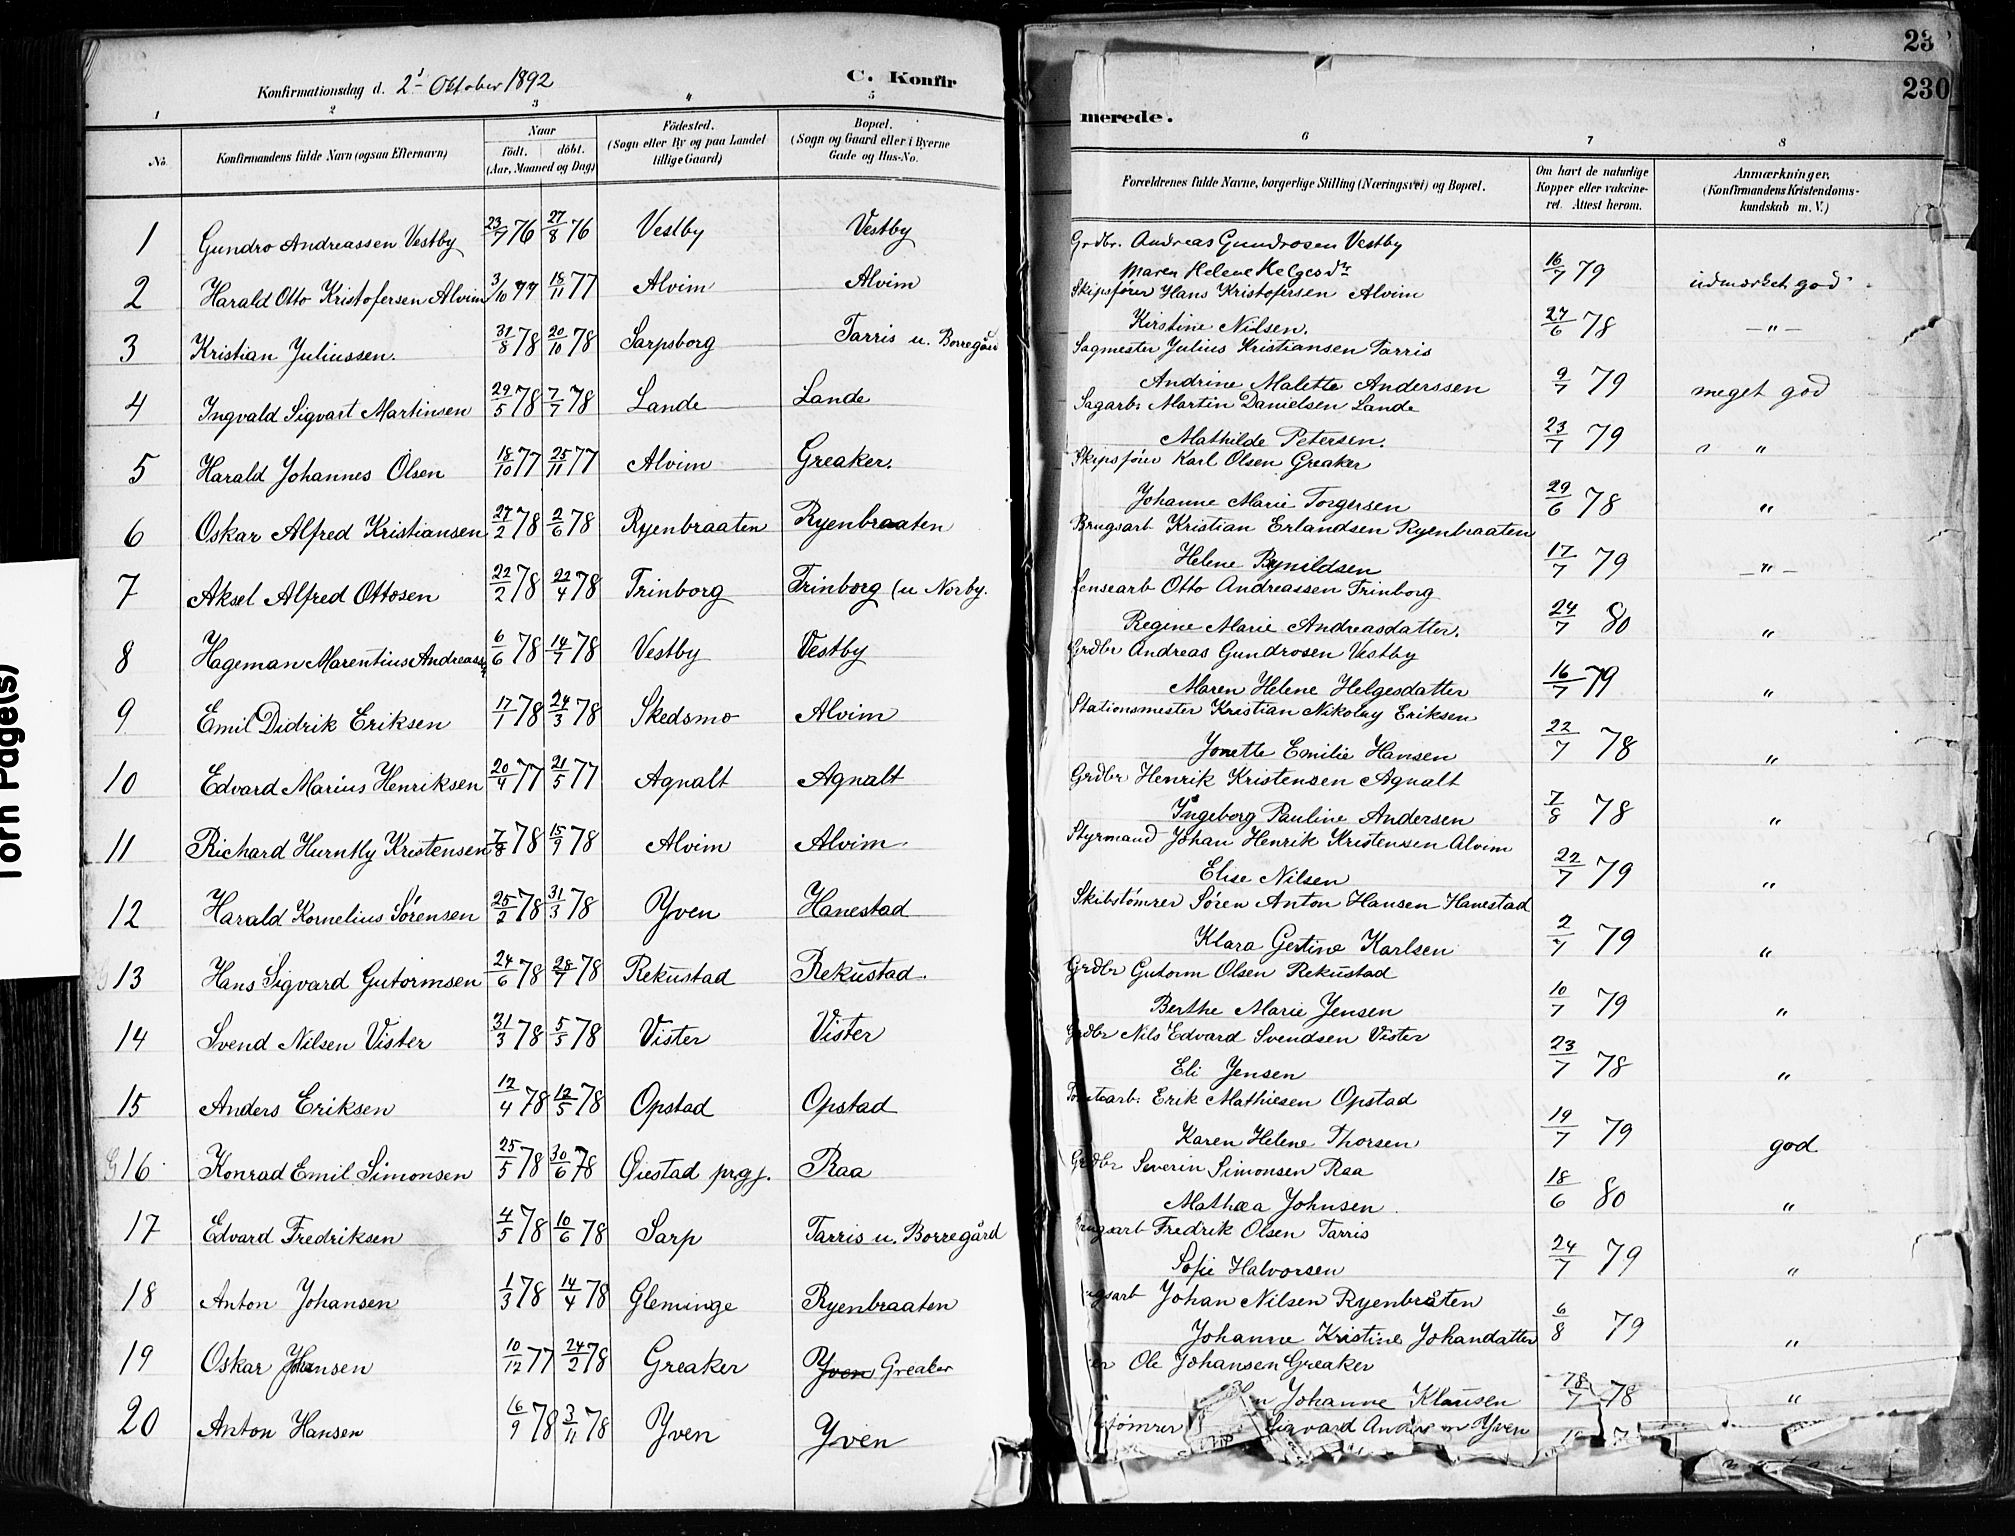 23
230
Konfirmationsdag d. 2' Oktober 1892
C. Konfir
merede.
1 2 3 4 5 6 7 8
No.
Konfirmandens fulde Navn (ogsaa Efternavn)
Naar
født. døbt.
(Aar, Maaned og Dag)
Fødested.
(Sogn eller By og paa Landet
tillige Gaard)
Bopæl.
(Sogn og Gaard eller i Byerne
Gade og Hus-No.
Forældrenes fulde Navne, borgerlige Stilling (Næringsvei) og Bopæl.
Om havt de naturlige
Kopper eller vakcine-
ret. Attest herom.
Anmærkninger.
(Konfirmandens Kristendoms-
kundskab m. V.)
1 Gundro Andreassen Vestby 23/7 76 27/8 76 Vestby Vestby
Grdbr. Andreas Gundrosen Vestby
Maren Helene Helgesdr 16/7 79 udmærket god
2 Harald Otto Kristofersen Alvim 3/10 77 18/11 77 Alvim Alvim
Skipsfører Hans Kristofersen Alvim
Kirstine Nilsen. 27/6 78 — " —
3 Kristian Juliussen. 31/8 78 20/10 78 Sarpsborg Tarris u. Borregård
Sagmester Julius Kristiansen Tarris
Andrine Malette Anderssen 9/7 79 meget god
4 Ingvald Sigvart Martinsen 29/5 78 7/7 78 Lande Lande
Sagarb. Martin Danielsen Lande
Mathilde Petersen. 23/7 79 " "
5 Harald Johannes Olsen 18/10 77 25/11 77 Alvim Greaker.
Skipsfører Karl Olsen Greaker
Johanne Marie Torgersen 29/6 78 "
6 Oskar Alfred Kristiansen 27/2 78 2/6 78 Ryenbraaten Ryenbraaten
Brugsarb. Kristian Erlandsen Ryenbraaten
Helene Bynildsen 17/7 79 — " —
7 Aksel Alfred Ottosen 22/2 78 22/4 78 Trinborg Trinborg (u Norby.
Lensearb Otto Andreassen Trinborg
Regine Marie Andreasdatter. 24/7 80 "
8 Hageman Marentius Andreassen 6/6 78 14/7 78 Vestby Vestby
Grdbr Andreas Gundrosen Vestby
Maren Helene Helgesdatter 16/7 79 "
9 Emil Didrik Eriksen 17/1 78 24/3 78 Skedsmo Alvim
Stationsmester Kristian Nikolay Eriksen
Jonette Emilie Hansen 22/7 78 "
10 Edvard Marius Henriksen 20/4 77 21/5 77 Agnalt Agnalt
Grdbr Henrik Kristensen Agnalt
Ingeborg Pauline Andersen 7/8 78 "
11 Richard Hurntly Kristensen 7/8 78 15/9 78 Alvim Alvim.
Styrmand Johan Henrik Kristensen Alvim
Elise Nilsen 22/7 79 "
12 Harald Kornelius Sørensen 25/2 78 31/3 78 Yven Hanestad
Skibstømrer Søren Anton Hansen Hanestad
Klara Gertine Karlsen 2/7 79 "
13 Hans Sigvard Gutormsen 24/6 78 28/7 78 Rekustad Rekustad.
Grdbr Gutorm Olsen Rekustad
Berthe Marie Jensen 10/7 79 "
14 Svend Nilsen Vister 31/3 78 5/5 78 Vister Vister
Grdbr Nils Edvard Svendsen Vister
Eli Jensen 23/7 78 "
15 Anders Eriksen 12/4 78 12/5 78 Opstad Opstad
Erik Mathiesen Opstad
Karen Helene Thorsen 19/7 79 god
16 Konrad Emil Simonsen 25/5 78 30/6 78 Øiestad prgj. Raa
Grdbr Severin Simonsen Raa
Mathea Johnsen 18/6 80 "
17 Edvard Fredriksen 4/5 78 10/6 78 Sarp Tarris u. Borregård
Brugsarb Fredrik Olsen Tarris
Sofie Halvorsen 24/7 79 "
18 Anton Johansen 1/3 78 14/4 78 Gleminge Ryenbraaten
gsarb Johan Nilsen Ryenbråten
Johanne Kristine Johandatter 6/8 79 "
19 Oskar Johansen 10/12 77 24/2 78 Greaker Yven Greaker
er Ole Johansen Greaker
n Johanne Klausen 18/7 78 "
20 Anton Hansen 16/9 78 3/11 78 Yven Yven
tømrer Sigvard Anders n Yven
Torn Page(s)